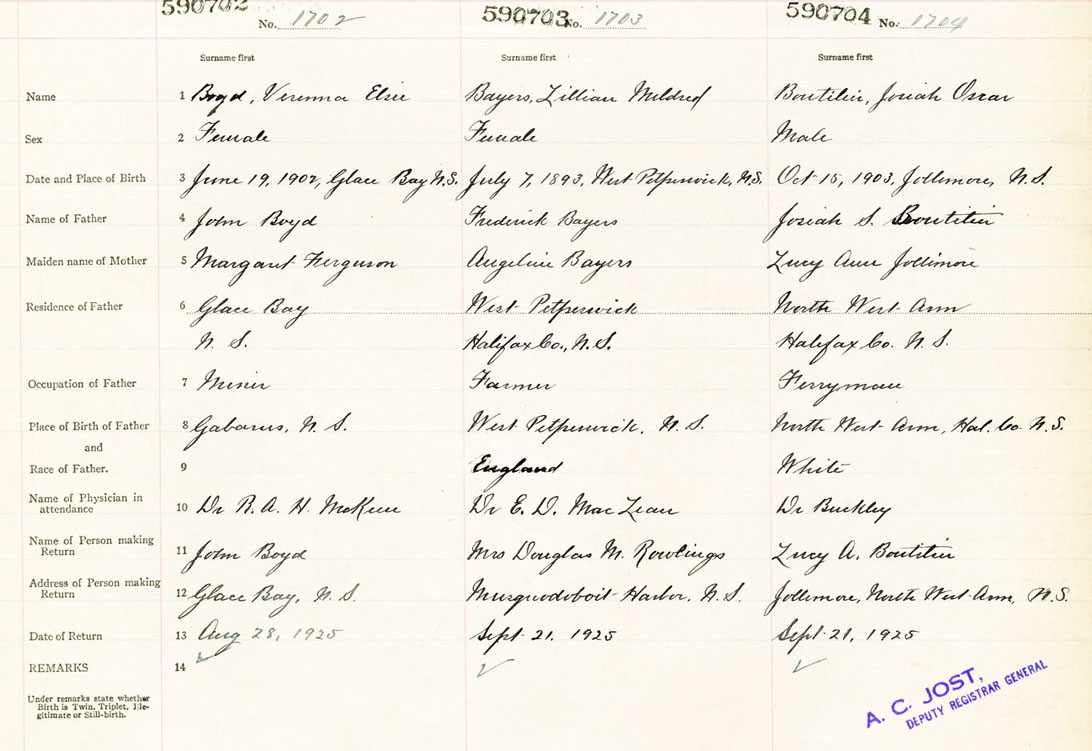 590702 No. 1702 590703 No. 1703 590704 No. 1704
Surname first Surname first Surname first
Name 1 Boyd, Verenna Elsie Bayers, Lillian Mildred Boutilier, Josiah Oscar
Sex 2 Female Female Male
Date and Place of Birth 3 June 19, 1902, Glace Bay N.S. July 7, 1893, West Petpeswick, N.S. Oct 15, 1903, Jollimore, N.S.
Name of Father 4 John Boyd Frederick Bayers Josiah S. Boutilier
Maiden name of Mother 5 Margaret Ferguson Angeline Bayers Lucy Ann Jollimore
Residence of Father 6 Glace Bay West Petpeswick North West Arm
N. S. Halifax Co., N.S. Halifax Co. N. S.
Occupation of Father 7 Miner Farmer Ferryman
Place of Birth of Father 8 Gabarus, N. S. West Petpeswick, N. S. North West Arm, Hal. Co. N.S.
and
Race of Father. 9 England White
Name of Physician in
attendance 10 Dr R. A. H. McKeen Dr E. D. MacLean Dr Buckley
Name of Person making
Return 11 John Boyd Mrs Douglas M. Rowlings Lucy A. Boutilier
Address of Person making
Return 12 Glace Bay, N. S. Musquodoboit Harbor, N. S. Jollimore, North West Arm, N.S.
Date of Return 13 Aug 28, 1925 Sept. 21, 1925 Sept. 21, 1925
REMARKS 14
Under remarks state whether
Birth is Twin, Triplet, Ille-
gitimate or Still-birth.
A. C. JOST,
DEPUTY REGISTRAR GENERAL